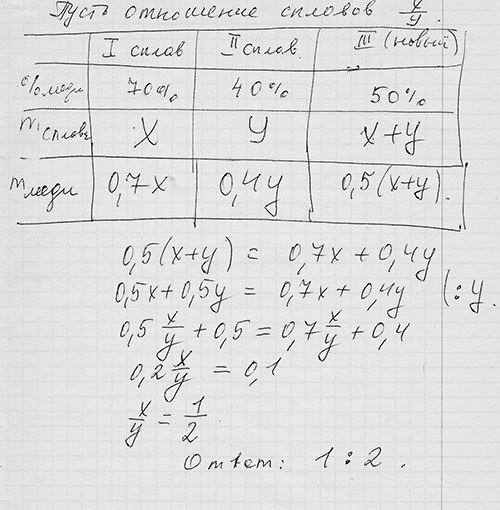 Пусть отношение сплавов x/y.
I сплав II сплав III (новый)
% меди 70% 40% 50%
m сплава x y x+y
m меди 0,7x 0,4y 0,5(x+y).
0,5(x+y) = 0,7x+0,4y
0,5x+0,5y = 0,7x+0,4y (:y.
0,5 x/y + 0,5 = 0,7 x/y + 0,4
0,2 x/y = 0,1
x/y = 1/2
Ответ: 1:2.